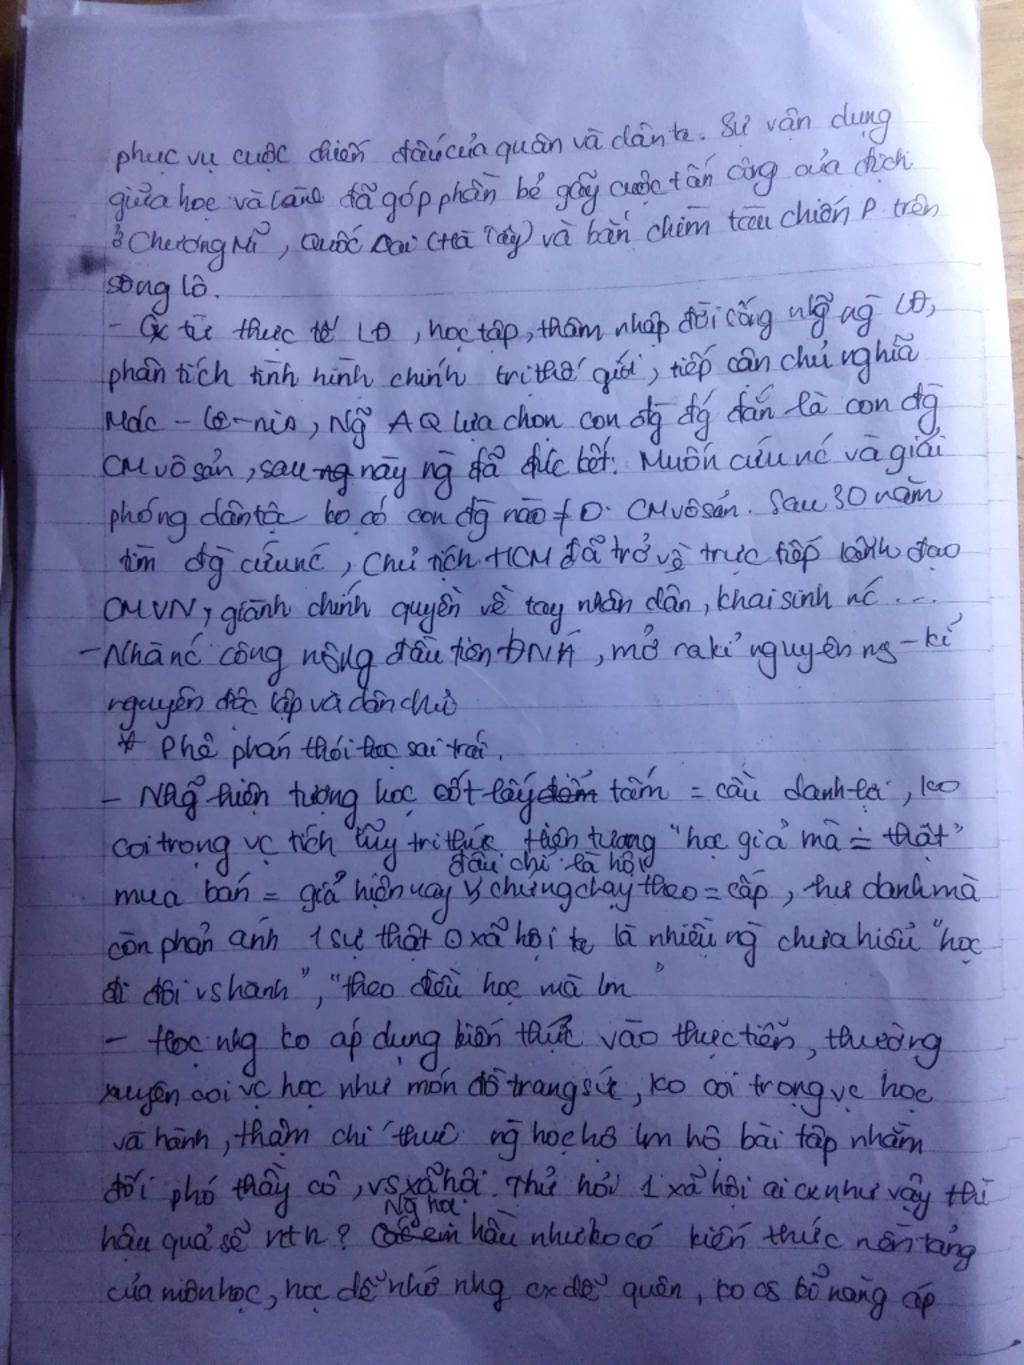 phục vụ cuộc chiến đấu của quân và dân ta. Sự vận dụng
giữa học và làm đã góp phần bẻ gãy cuộc tấn công của địch
ở Chương Mĩ, Quốc Oai (Hà Tây) và bắn chìm tàu chiến P. trên
sông Lô.
- Cx từ thực tế LĐ, học tập, thâm nhập đời sống nhg ng LĐ,
phân tích tình hình chính trị thế giới, tiếp cận chủ nghĩa
Mác - Lê-nin, Ng AQ lựa chọn con đg đg đắn là con đg
CM vô sản, sau này ng đã đúc kết: Muốn cứu nc và giải
phóng dân tộc ko có con đg nào ≠ CM vô sản. Sau 30 năm
tìm đg cứu nc, Chủ tịch HCM đã trở về trực tiếp lãnh đạo
CMVN, giành chính quyền về tay nhân dân, khai sinh nc ...
- Nhà nc công nông đầu tiên ĐNÁ, mở ra kỉ nguyên - kỉ
nguyên độc lập và dân chủ
* Phê phán thói học sai trái.
- Nhg hiện tượng học cốt lấy điểm tấm = cầu danh lợi, ko
coi trọng vc tích lũy tri thức hiện tượng "học giả mà = thật"
đâu chỉ là hội
mua bán = giả hiện nay chứng chạy theo = cấp, hư danh mà
còn phản ánh 1 sự thật xã hội ta là nhiều ng chưa hiểu "học
đi đôi vs hành", "theo điều học mà lm"
- Học nhg ko áp dụng kiến thức vào thực tiễn, thường
xuyên coi vc học như món đồ trang sức, ko coi trọng vc học
và hành, thậm chí thuê ng học hộ lm hộ bài tập nhằm
đối phó thầy cô, vs xã hội. Thử hỏi 1 xã hội ai cx như vậy thì
Ng học
hậu quả sẽ ntn? Các em hầu như ko có kiến thức nền tảng
của môn học, học để nhớ nhg cx dễ quên, ko có khả năng áp